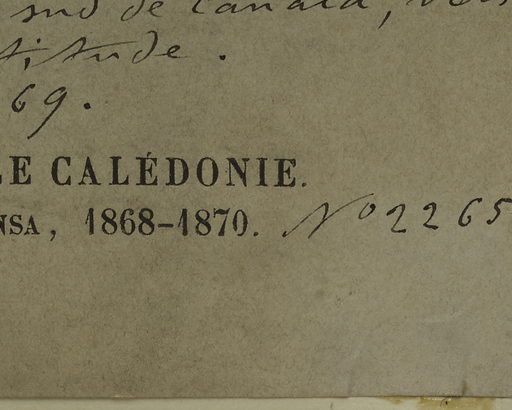 sud de Canala, vers
titude.
69.
LE CALÉDONIE.
NSA, 1868-1870. No 2265